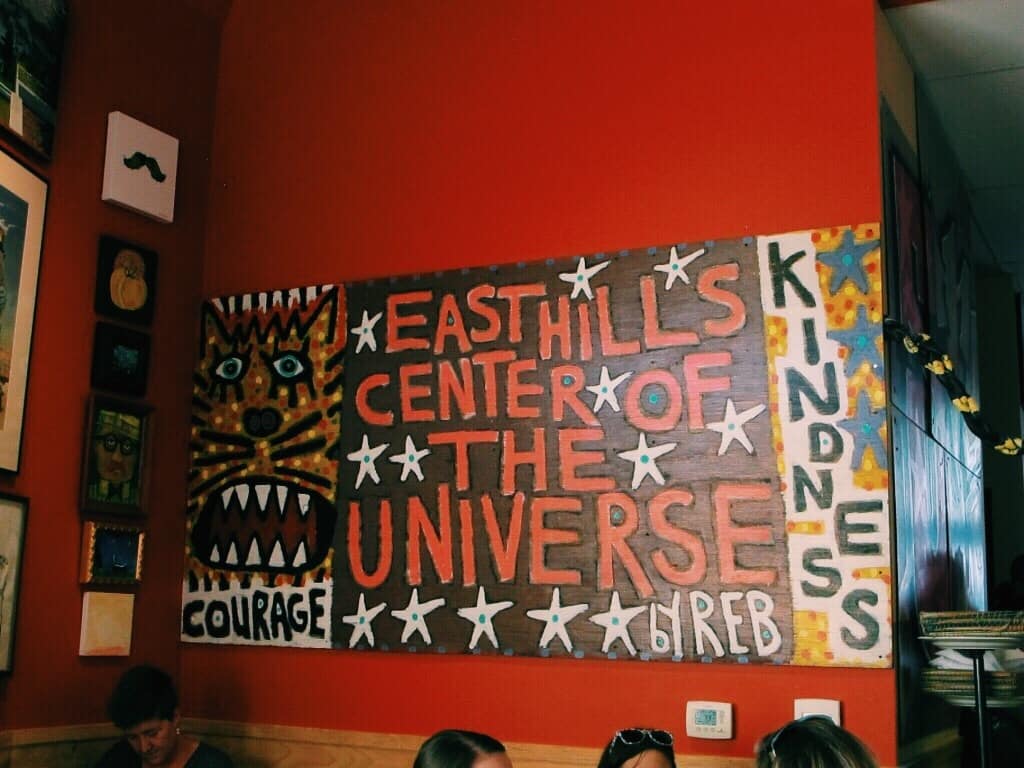 COURAGE
EAST HILLS
CENTER OF
THE
UNIVERSE
by REB
KINDNESS